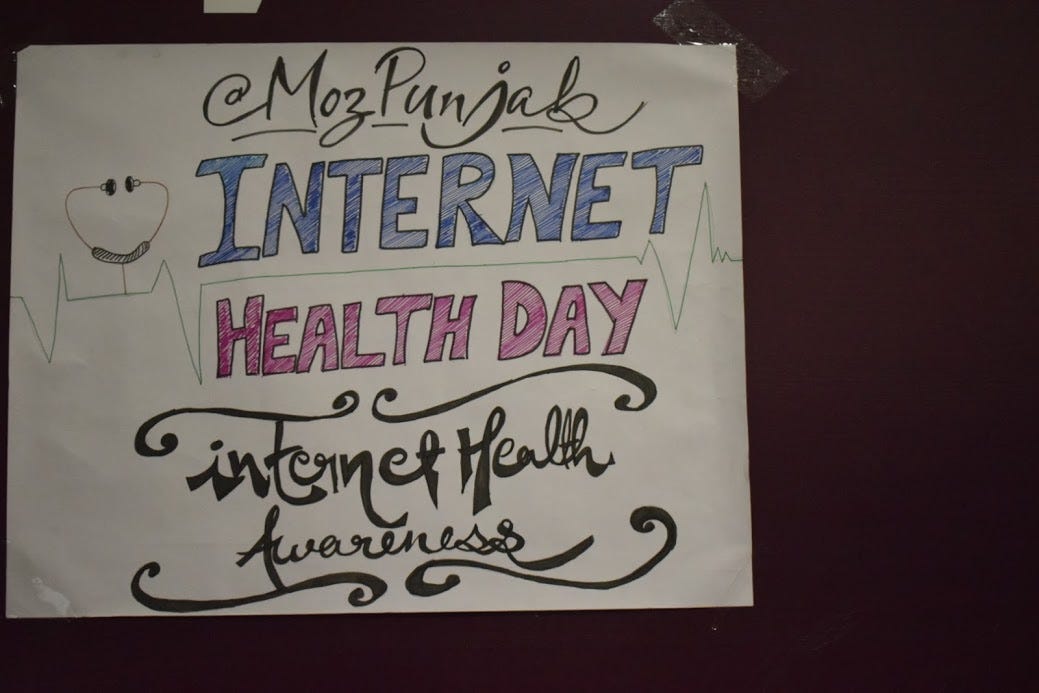 @MozPunjab
INTERNET
HEALTH DAY
internet Health
Awareness